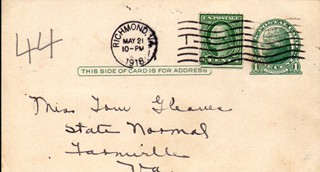 44
RICHMOND, VA.
MAY 21
10-PM
1918
THIS SIDE OF CARD IS FOR ADDRESS
1
Miss Tom Gleaves
State Normal
Farmville
Va.